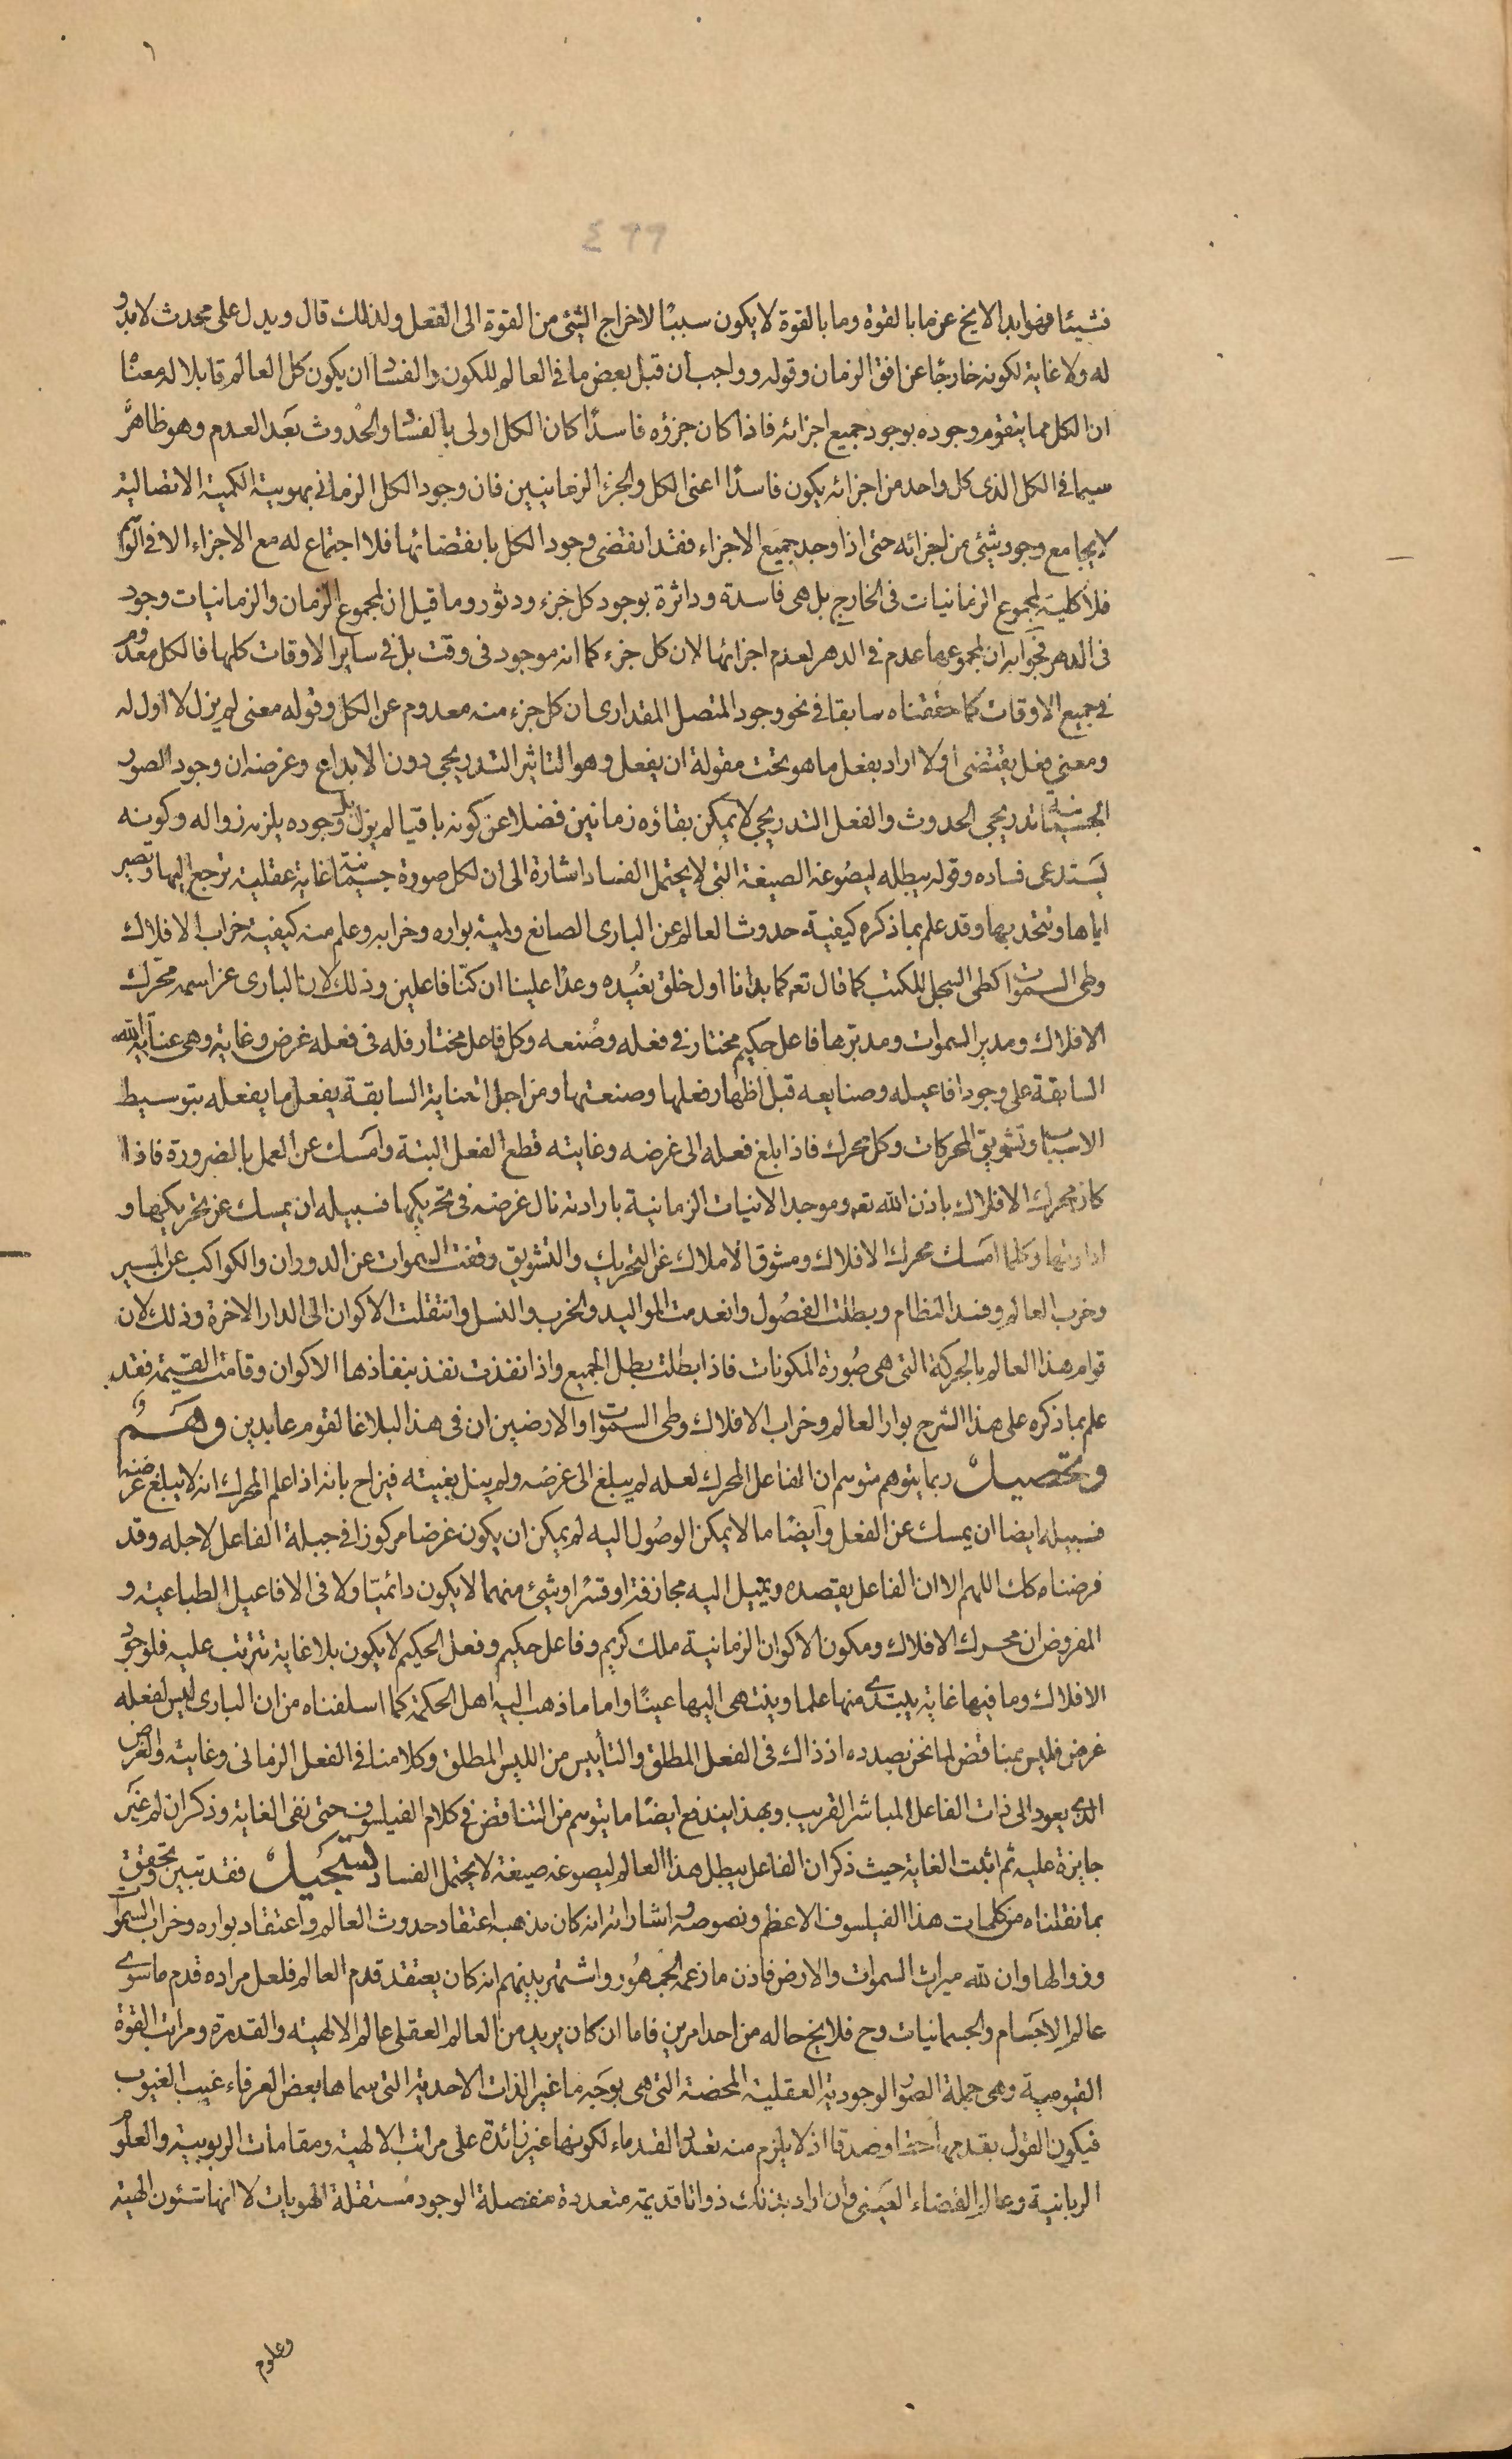 ٤٩٩
فشيئا فهو ابدا لا يخ عن ما بالقوة وما بالقوة لا يكون سببًا لاخراج الشئ من القوة الى الفعل ولذلك قال ويدل على محدث لا بدو
له ولا غاية لكونه خارجًا عن افق الزمان وقوله وواجب ان قبل بعض ما في العالم للكون والفساد ان يكون كل العالم قابلا له معناه
ان الكل مما يتقوم وجوده بوجود جميع اجزائه فاذا كان جزؤه فاسدًا كان الكل اولى بالفساد والحدوث بعد العدم وهو ظاهر
سيما في الكل الذى كل واحد من اجزائه يكون فاسدًا اعنى الكل والجزء الزمانيين فان وجود الكل الزماني بهويته الكمية الاتصالية
لا يجامع وجود شئ من اجزائه حتى اذا وجد جميع الاجزاء فقد انقضى وجود الكل بانقضائها فلا اجتماع له مع الاجزاء الا في الوهم
فلا كلية لمجموع الزمانيات فى الخارج بل هى فاسدة وداثرة بوجود كل جزء ودثوره وما قيل ان لمجموع الزمان والزمانيات وجود
فى الدهر فجوابه ان لمجموعهما عدم في الدهر لعدم اجزائها لان كل جزء كما انه موجود فى وقت بل في ساير الاوقات كلها فالكل معدوم
في جميع الاوقات كما حققناه سابقا في نحو وجود المتصل المقدارى ان كل جزء منه معدوم عن الكل وقوله معنى لم يزل لا اول له
ومعنى فعل يقتضى اولا اراد بفعل ما هو تحت مقولة ان يفعل وهو التاثير التدريجي دون الابداع وغرضه ان وجود الصور
الجسمانية تدريجي الحدوث والفعل التدريجي لا يمكن بقاؤه زمانين فضلا عن كونه باقيا لم يزل بل وجوده يلزمه زواله وكونه
يستدعى فساده وقوله يبطله ليصوغه الصيغة التي لا يحتمل الفساد اشارة الى ان لكل صورة جسمانية غاية عقلية ترجع اليها وتصير
اياها وتتحد بها وقد علم بما ذكره كيفية حدوث العالم عن البارى الصانع ولمية بواره وخرابه وعلم منه كيفية خراب الافلاك
وطى السموات كطى السجل للكتب كما قال تعه كما بدانا اول خلق نعيده وعدًا علينا ان كنا فاعلين وذلك لان البارى عز اسمه محرك
الافلاك ومدير السموات ومدبرها فاعل حكيم مختار في فعله وصنعه وكل فاعل مختار فله فى فعله غرض وغاية وهى عناية الله
السابقة على وجود افاعيله وصنايعه قبل اظهار فعلها وصنعتها ومن اجل العناية السابقة يفعل ما يفعله بتوسيط
الاسباب وتشويق المحركات وكل محرك فاذا بلغ فعله الى غرضه وغايته قطع الفعل البتة وامسك عن العمل بالضرورة فاذا
كان محرك الافلاك باذن الله تعه وموجد الانيات الزمانية بارادته نال غرضه فى تحريكها فسبيله ان يمسك عن تحريكها و
ادارتها وكلما امسك محرك الافلاك ومشوق الاملاك عن التحريك والتشويق وقفت السموات عن الدوران والكواكب عن المسير
وخرب العالم وفسد النظام وبطلت الفصول وانعدمت المواليد والحرث والنسل وانتقلت الاكوان الى الدار الاخرة وذلك لان
قوام هذا العالم بالحركة التى هى صورة المكونات فاذا بطلت بطل الجميع واذا نفذت نفذ بنفاذها الاكوان وقامت القيمة فقد
علم بما ذكره على هذا الشرح بوار العالم وخراب الافلاك وطى السموات والارضين ان فى هذا البلاغا لقوم عابدين وهم
وتحصيل ربما يتوهم متوهم ان الفاعل المحرك لعله لم يبلغ الى غرضه ولم ينل بغيته فيزاح بانه اذا علم المحرك انه لا يبلغ غرضه
فسبيله ايضا ان يمسك عن الفعل وايضًا ما لا يمكن الوصول اليه لم يمكن ان يكون غرضا مركوزا في جبلة الفاعل لاجله وقد
فرضناه كك اللهم الا ان الفاعل يقصده ويميل اليه مجازفة او قسرًا وشئ منهما لا يكون دائميًا ولا فى الافاعيل الطباعية و
المفروض ان محرك الافلاك ومكون الاكوان الزمانية ملك كريم وفاعل حكيم وفعل الحكيم لا يكون بلا غاية تترتب عليه فلوجود
الافلاك وما فيها غاية يبتدئ منها علما وينتهى اليها عينًا واما ما ذهب اليه اهل الحكمة كما اسلفناه من ان البارى ليس لفعله
غرض فليس بمناقض لما نحن بصدده اذ ذاك فى الفعل المطلق والتأييس من الليس المطلق وكلامنا في الفعل الزمانى وغايته والغرض
الذى يعود الى ذات الفاعل المباشر القريب وبهذا يندفع ايضًا ما يتوهم من التناقض في كلام الفيلسوف حتى نفى الغاية وذكر ان لم غير
جايزة عليه ثم اثبت الغاية حيث ذكر ان الفاعل يبطل هذا العالم ليصوغه صيغة لا يحتمل الفساد تسجيل فقد تبين وتحقق
بما نقلناه من كلمات هذا الفيلسوف الاعظم ونصوصه واشاراته انه كان مذهبه اعتقاد حدوث العالم واعتقاد بواره وخراب السموات
وزوالها وان لله ميراث السموات والارض فاذن ما زعمه الجمهور واشتهر بينهم انه كان يعتقد قدم العالم فلعل مراده قدم ما سوى
عالم الاجسام والجسمانيات وح فلا يخ حاله من احد امرين فاما ان كان يريد من العالم العقلى عالم الالهية والقدرة ومراتب القوة
القيومية وهى جملة الصور الوجودية العقلية المحضة التى هى بوجه ما غير الذات الاحدية التى سماها بعض العرفاء غيب الغيوب
فيكون القول بقدمها حقا وصدقا اذ لا يلزم منه تعدد القدماء لكونها غير زائدة على مراتب الالهية ومقامات الربوبية والعلوم
الربانية وعالم القضاء العينى وان اراد بذلك ذواتا قديمة متعددة منفصلة الوجود مستقلة الهويات لا انها شئون الهية
وعلوم